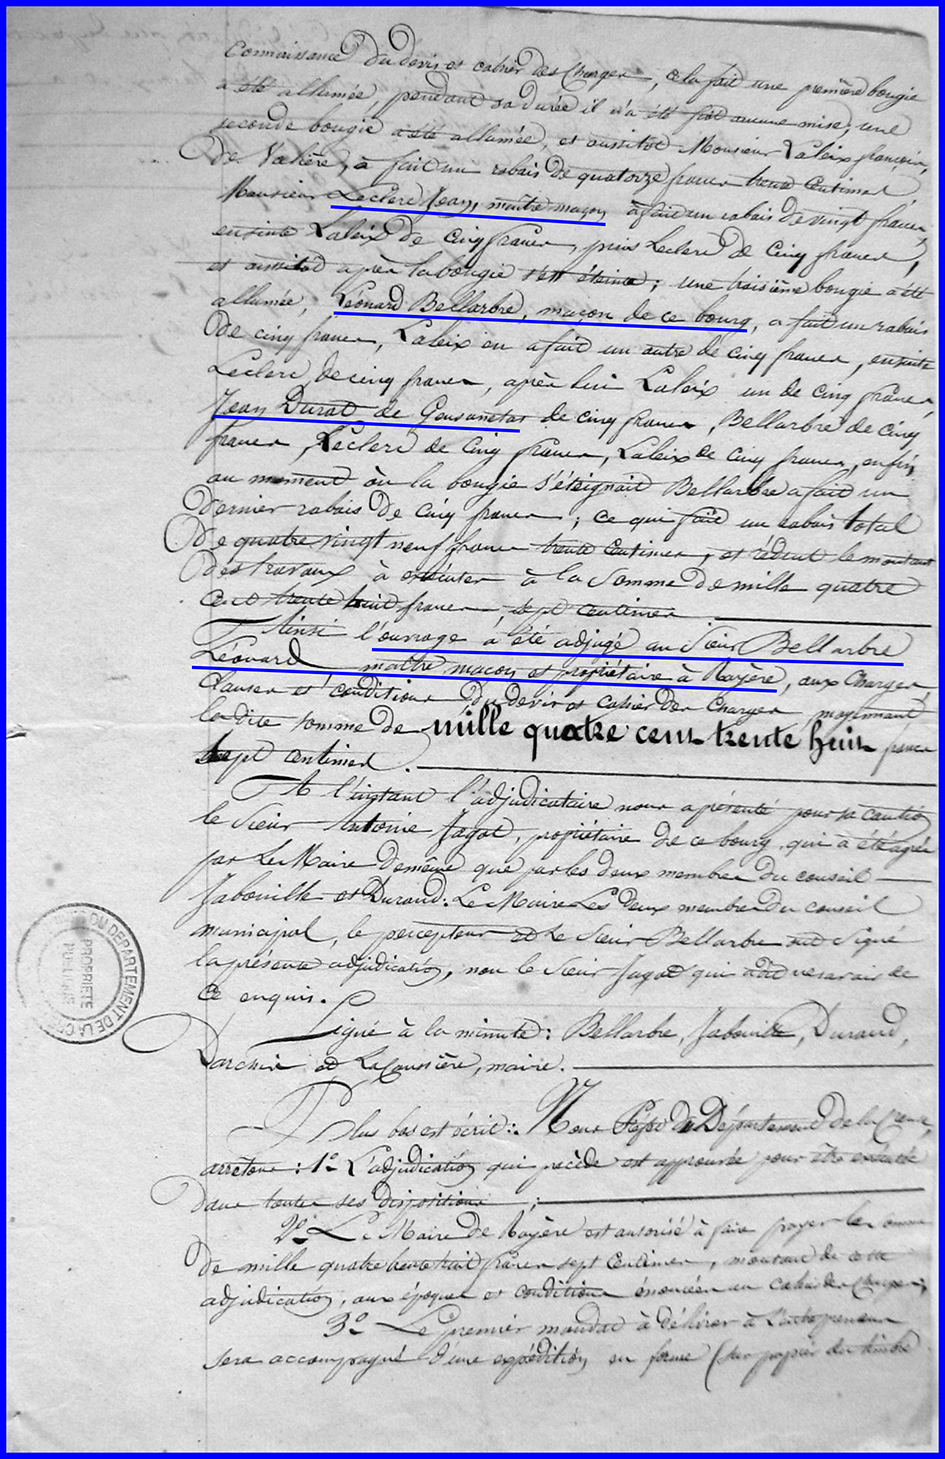 Connaissance du devis et cahier des Charges, cela fait une première bougie
a été allumée, pendant sa durée il n'a été fait aucune mise; une
seconde bougie a été allumée, et aussitot Monsieur Laleix françois,
de Vallière, à fait un rabais de quatorze francs trente centimes
Monsieur Leclerc Jean, maitre maçon à fait un rabais de vingt francs,
ensuite Laleix de cinq francs, puis Leclerc de cinq francs,
et aussitôt après la bougie s'est éteinte; une troisième bougie a été
allumée, Léonard Bellarbre, maçon de ce bourg, a fait un rabais
de cinq francs, Laleix en a fait un autre de cinq francs, ensuite
Leclerc de cinq francs, après lui Laleix un de cinq francs,
Jean Durat de de cinq francs, Bellarbre de cinq
francs, Leclerc de cinq francs, Laleix de cinq francs, enfin
au moment où la bougie s'éteignait Bellarbre a fait un
dernier rabais de cinq francs; ce qui fait un rabais total
de quatre vingt neuf francs trente centimes, et réduit le montant
des travaux à exécuter à la somme de mille quatre
cent trente huit francs sept centimes
Ainsi l'ouvrage a été adjugé au Sieur Bellarbre
Léonard maitre maçon et propriétaire à Royère, aux Charges
Clauses et conditions du devis et cahier des Charges, moyennant
la dite somme de mille quatre cent trente huit francs
sept centimes.
A l'instant l'adjudicataire nous a présenté pour sa caution
le Sieur Antoine Jagot, propriétaire de ce bourg, qui a été agréé
par le Maire de même que par les deux membres du conseil
Jabouille et Durand. Le Maire Les deux membres du conseil
municipal, le percepteur et le Sieur Bellarbre ont signé
la présente adjudication, non le Sieur Jagot qui a dit ne savoir de
ce enquis.
Signé à la minute: Bellarbre, Jabouille, Durand,
et Lacoussière, maire.
Plus bas est écrit: Nous Préfet du Département de la Creuse,
arrêtons: 1º L'adjudication qui précède est approuvée pour être exécutée
dans toutes ses dispositions;
2º Le Maire de Royère est autorisé à faire payer la somme
de mille quatre cent trente huit francs sept Centimes, montant de cette
adjudication, aux époques et conditions énoncées au cahier des charges;
3º Le premier mandat à délivrer à l'entrepreneur
sera accompagné d'une expédition en forme (sur papier du timbre
DU DEPARTEMENT DE LA
PROPRIETE
PUBLIQUE